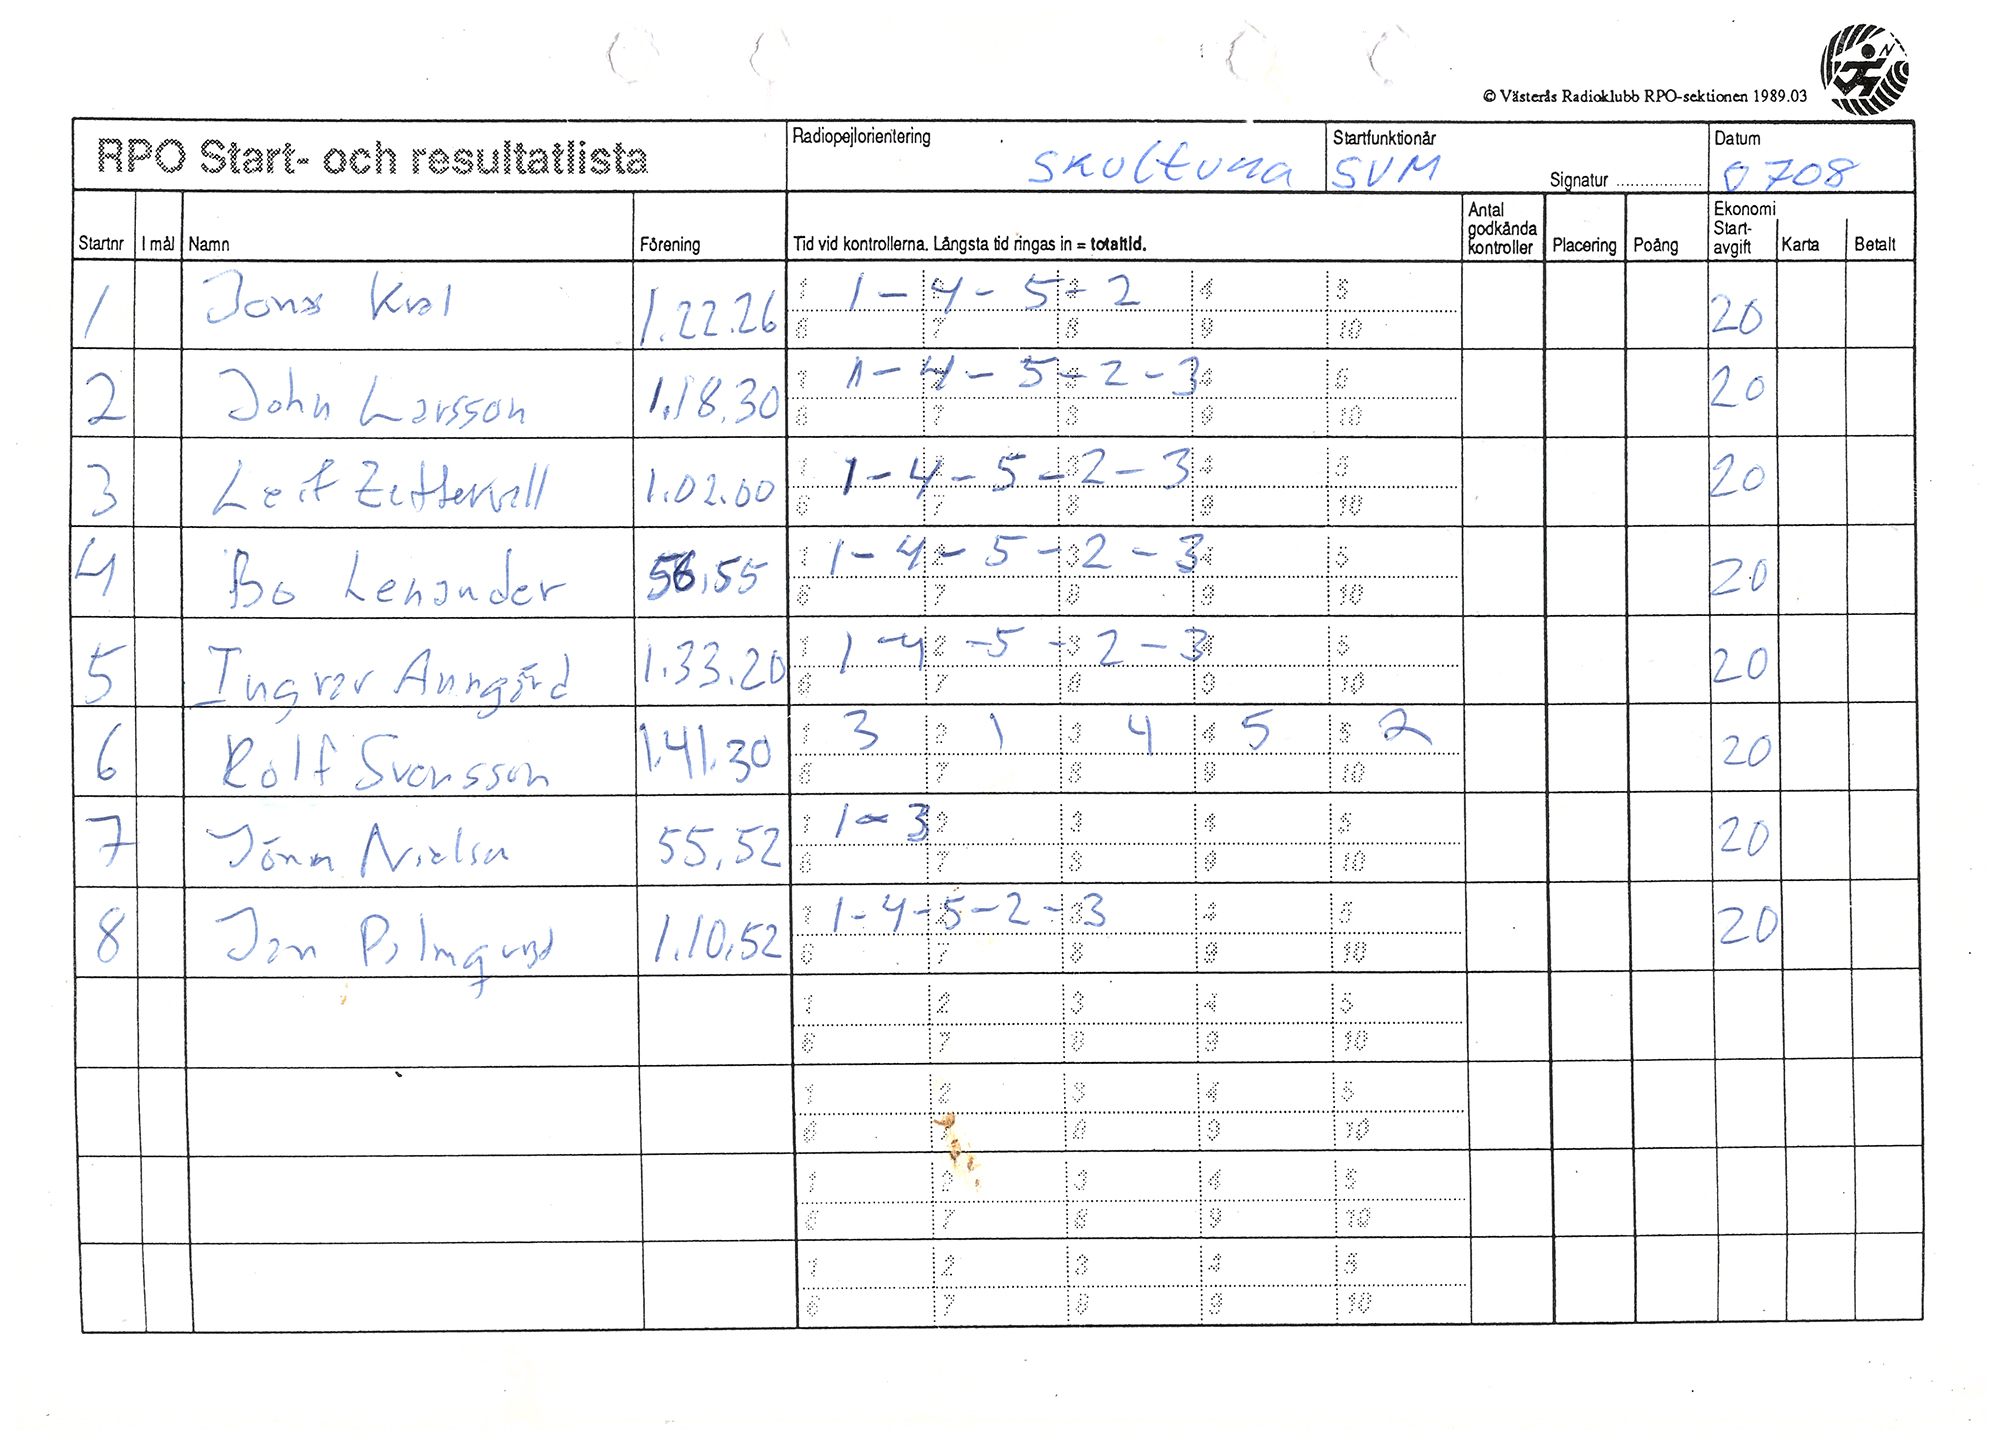 © Västerås Radioklubb RPO-sektionen 1989.03
RPO Start- och resultatlista
Radiopejlorientering
Skultuna
Startfunktionär
SVM
Signatur ..................
Datum
0708
Startnr I mål Namn Förening Tid vid kontrollerna. Längsta tid ringas in = totaltid. Antal godkända kontroller Placering Poäng Ekonomi Start-avgift Karta Betalt
1 Jonas Kral 1.22.26 1 - 4 - 5 - 2 20
1 2 3 4 5
6 7 8 9 10
2 John Larsson 1.18.30 1 - 4 - 5 - 2 - 3 20
1 2 3 4 5
6 7 8 9 10
3 Leif Zettervall 1.02.00 1 - 4 - 5 - 2 - 3 20
1 2 3 4 5
6 7 8 9 10
4 Bo Lenander 56.55 1 - 4 - 5 - 2 - 3 20
1 2 3 4 5
6 7 8 9 10
5 Ingvar Anngård 1.33.20 1 - 4 - 5 - 2 - 3 20
1 2 3 4 5
6 7 8 9 10
6 Rolf Svensson 1.41.30 3 1 4 5 2 20
1 2 3 4 5
6 7 8 9 10
7 Nielsen 55.52 1 - 3 20
1 2 3 4 5
6 7 8 9 10
8 Jan Palmqvist 1.10.52 1 - 4 - 5 - 2 - 3 20
1 2 3 4 5
6 7 8 9 10
1 2 3 4 5
6 7 8 9 10
1 2 3 4 5
6 7 8 9 10
1 2 3 4 5
6 7 8 9 10
1 2 3 4 5
6 7 8 9 10